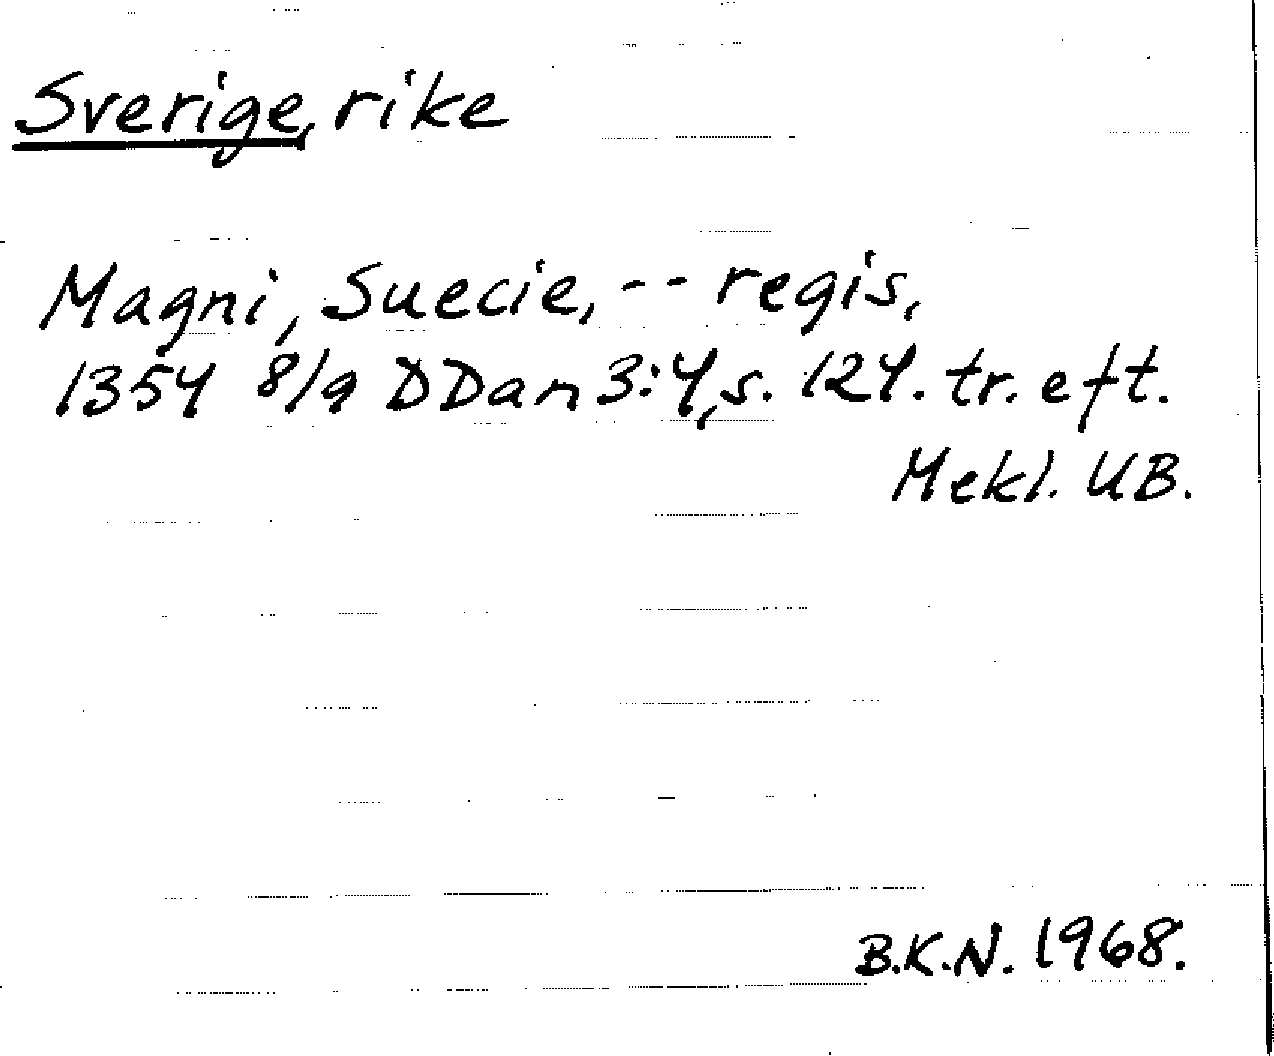 Sverige, rike
Magni, Suecie, -- regis,
1354 8/9 DDan 3:4, s. 124. tr. eft.
Mekl. UB.
B.K.N. 1968.